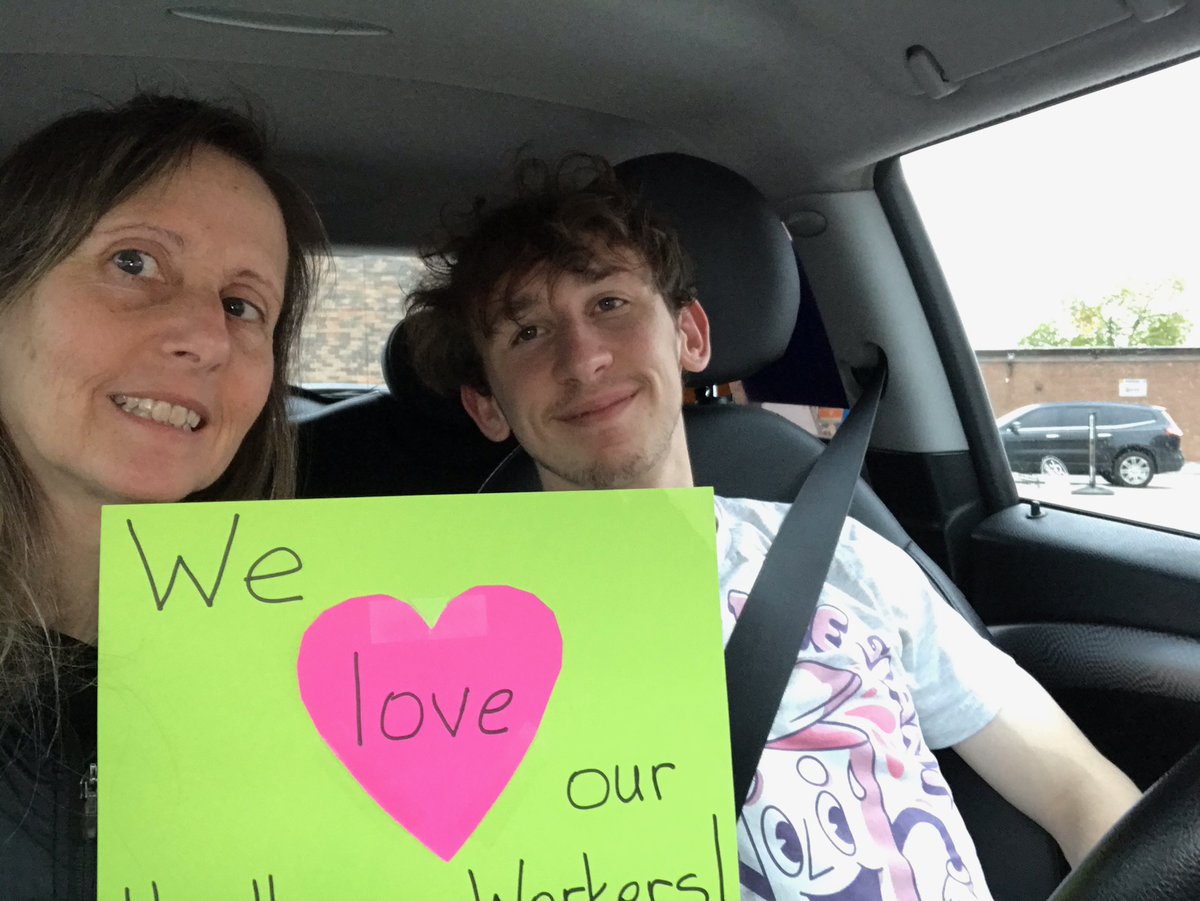 We
love
our
Workers!